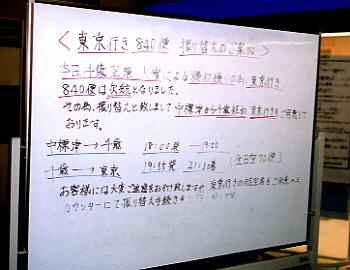 <東京行き 840便 振り替えのご案内>
本日、千歳空港 大雪による機材繰りの為、東京行き
840便は欠航となりました。
その為、振り替えと致しまして 中標津から千歳経由 東京行きをご用意して
おります。
中標津→千歳 18:00発 — 19:00
千歳→東京 19:35発 21:10着 (全日空70便)
お客様には大変ご迷惑をお掛け致しますが、東京行きの航空券をご用意の上
カウンターにて振り替え手続き